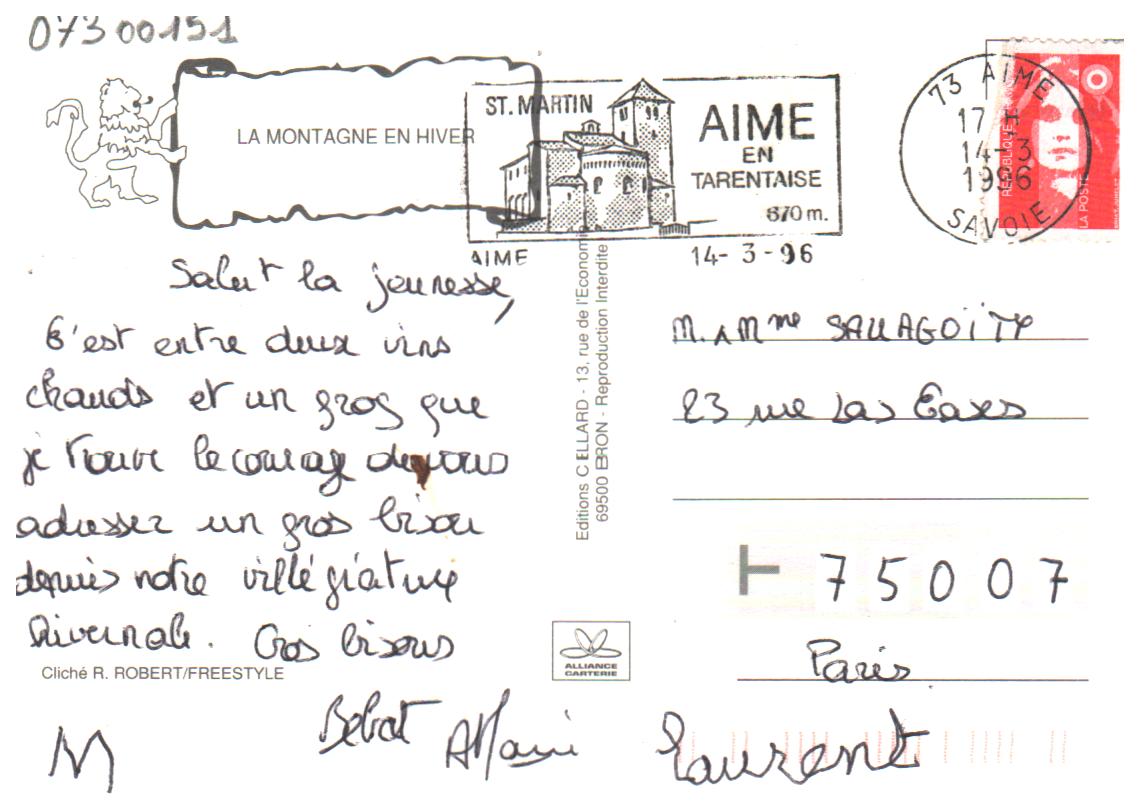 07300151
LA MONTAGNE EN HIVER
ST. MARTIN
AIME
EN
TARENTAISE
870 m.
AIME
14-3-96
73 AIME
17 H
14-3
1996
SAVOIE
RÉPUBLIQUE
LA POSTE
Salut la jeunesse,
C'est entre deux vins
chauds et un grog que
je trouve le courage de vous
adresser un gros bisou
depuis notre villégiature
hivernale. Gros bisous
Cliché R. ROBERT/FREESTYLE
M
Laurent
Editions CELLARD - 13, rue de l'Economie
69500 BRON - Reproduction Interdite
ALLIANCE
CARTERIE
M. & Mme SALLAGOÏTY
23 rue Las Cases
75007
Paris